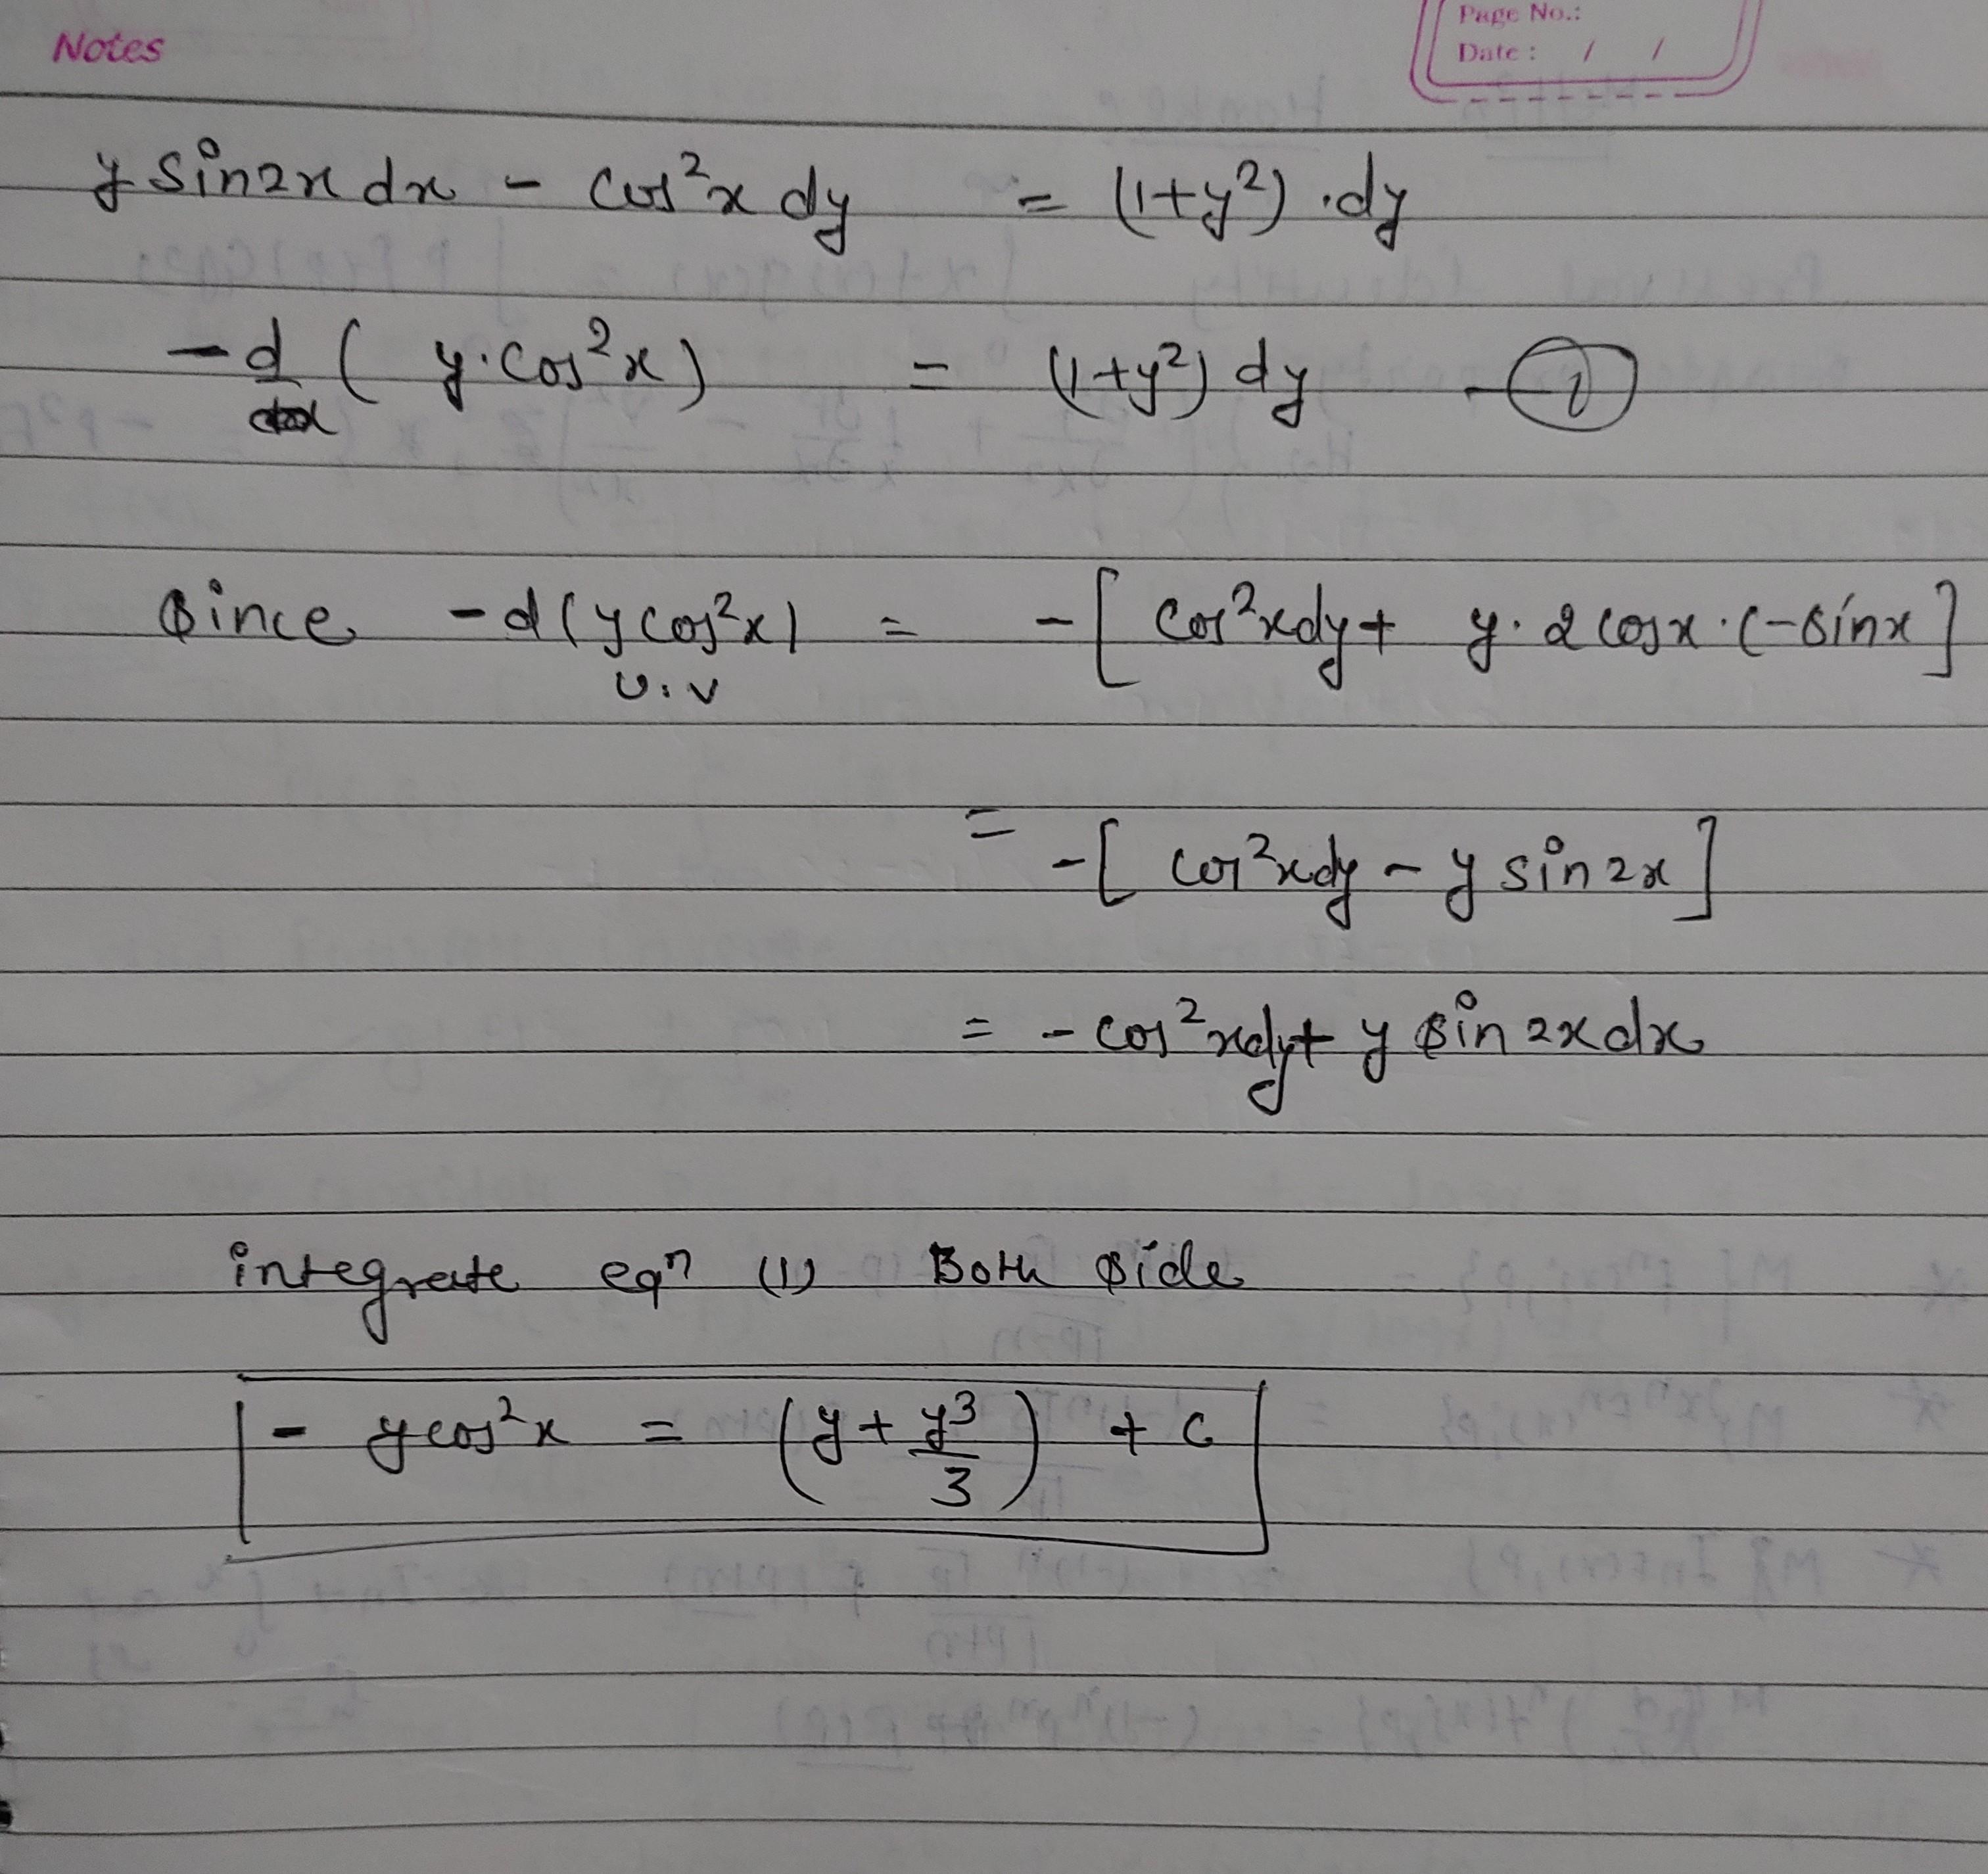 Notes
Page No.:
Date : / /
y sin2x dx - cos²x dy = (1+y²) .dy
-d ( y.cos²x) = (1+y²) dy - (1)
Since -d(ycos²x) = -[ cos²xdy + y. 2 cosx .(-sinx ]
U.V
= -[ cos²xdy - y sin 2x ]
= - cos²xdy + y sin 2x dx
integrate eqⁿ (1) Both side
- ycos²x = (y + y³/3) + c